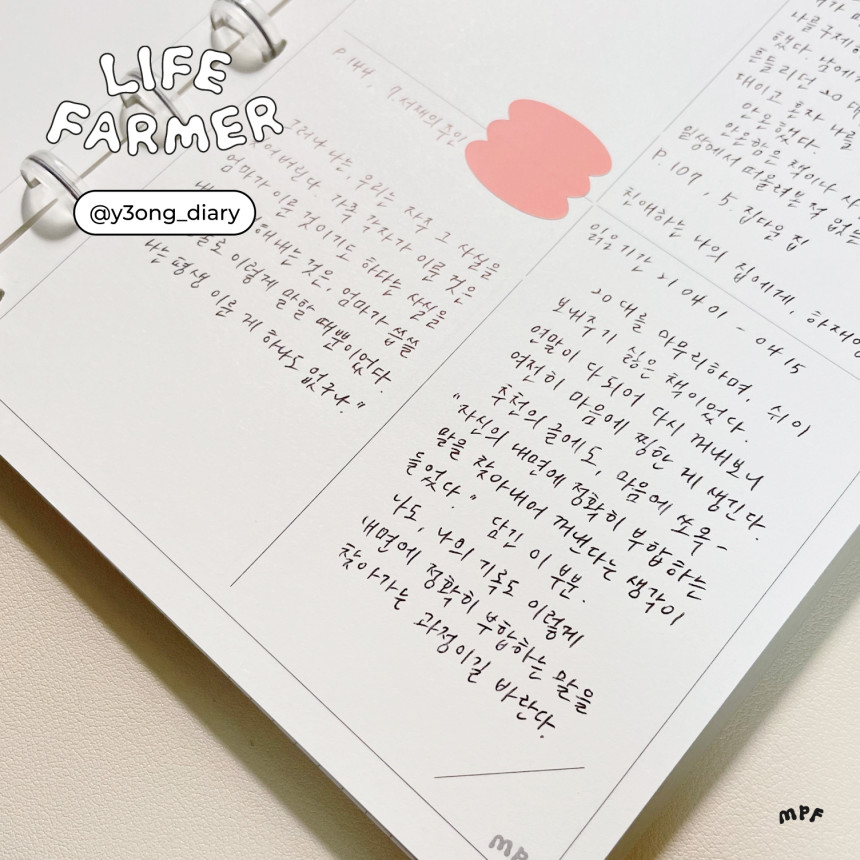 LIFE
FARMER
@y3ong_diary
P.144, 7. 서재의 주인
그러나 나는, 우리는 자주 그 사실을
잊어버린다. 가족 각자가 이룬 것은
엄마가 이룬 것이기도 하다는 사실을
해내는 것은, 엄마가 씁쓸
이렇게 말할 때뿐이었다.
나는 평생 이룬 게 하나도 없구나."
나를 구제
했다. 남에
흔들리던 20대
대이고 혼자 나를
안온했다.
안온함은 책이나 시
일상에서 떠올려본 적 없는
P.107, 5. 집다운 집
친애하는 나의 집에게, 하재영
읽은 기간 21 04 01 - 04 15
20대를 마무리하며, 쉬이
보내주기 싫은 책이었다.
연말이 다 되어 다시 꺼내보니
여전히 마음에 찡한 게 생긴다.
추천의 글에도, 마음에 쏘옥-
"자신의 내면에 정확히 부합하는
말을 찾아내어 꺼낸다는 생각이
들었다." 담긴 이 부분.
나도, 나의 기록도 이렇게
내면에 정확히 부합하는 말을
찾아가는 과정이길 바란다.
MPF
MPF